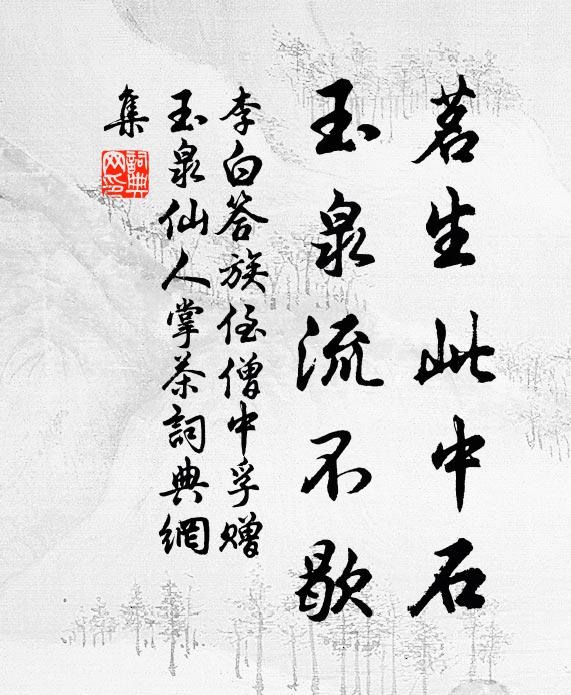 茗生此中石
玉泉流不歇
李白答族侄僧中孚赠
玉泉仙人掌茶詞典網
集
詞典
网印